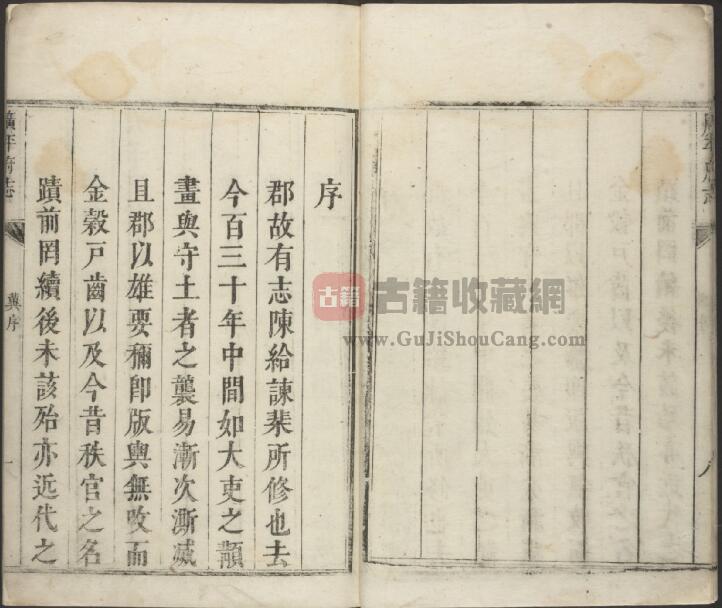 廣平府志
八
序
郡故有志陳給諫棐所修也去
今百三十年中間如大吏之顓
畫與守土者之襲易漸次澌滅
且郡以雄要穪卽版輿無攺而
金穀戶齒以及今昔秩官之名
蹟前罔續後未該殆亦近代之
廣平府志
冀序
一
古籍
古籍收藏網
www.GuJiShouCang.com